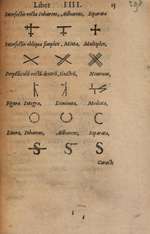 Liber IIII.
Intersectio recta Inhærens, Adhærens, Separata
Intersectio obliqua simplex, Mixta, Multiplex,
Perpendicularis recta dextra, sinistra, Neutrum,
Figura Integra, Diminuta,
Litera, Inhærens, Adhærens, Separata,
S S S